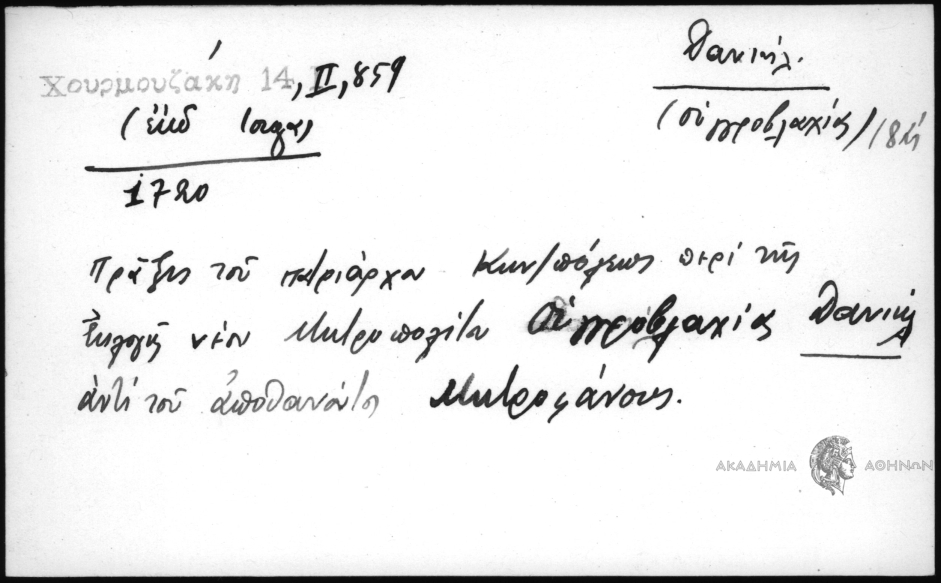 Χουρμουζάκη 14, II, 859
(ἔκδ Ιοργα)
1720
Δανιήλ.
(Οὑγγροβλαχίας)
Πρᾶξις τοῦ πατριάρχου Κων/πόλεως περί τῆς
ἐκλογῆς νέου Μητροπολίτου Οὑγγροβλαχίας Δανιήλ
ἀντί τοῦ ἀποθανόντος Μητροφάνους.
ΑΚΑΔΗΜΙΑ ΑΘΗΝΩΝ